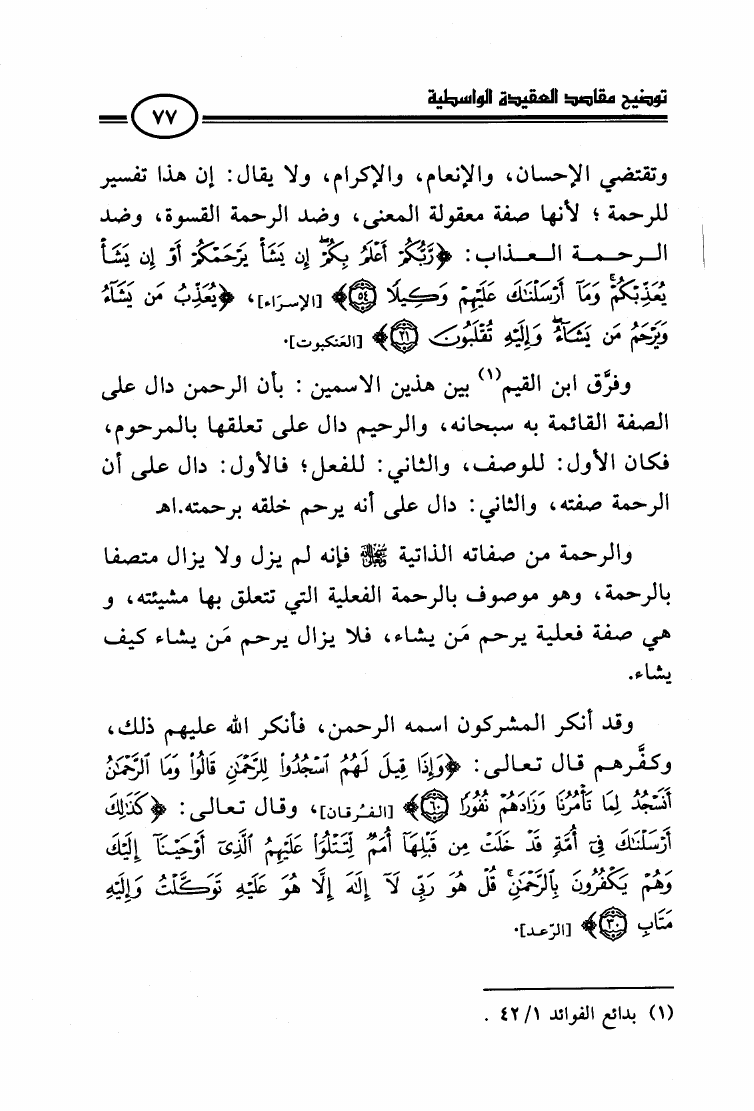 توضيح مقاصد العقيدة الواسطية
٧٧
وتقتضي الإحسان، والإنعام، والإكرام، ولا يقال: إن هذا تفسير
للرحمة ؛ لأنها صفة معقولة المعنى، وضد الرحمة القسوة، وضد
الرحمة العذاب: ﴿رَّبُّكُمْ أَعْلَمُ بِكُمْ ۖ إِن يَشَأْ يَرْحَمْكُمْ أَوْ إِن يَشَأْ
يُعَذِّبْكُمْ ۚ وَمَآ أَرْسَلْنَٰكَ عَلَيْهِمْ وَكِيلًا ٥٤﴾ [الإسرَاء]، ﴿يُعَذِّبُ مَن يَشَآءُ
وَيَرْحَمُ مَن يَشَآءُ ۖ وَإِلَيْهِ تُقْلَبُونَ ٢١﴾ [العَنكبوت].
وفرَّق ابن القيم(١) بين هذين الاسمين : بأن الرحمن دال على
الصفة القائمة به سبحانه، والرحيم دال على تعلقها بالمرحوم،
فكان الأول: للوصف، والثاني: للفعل؛ فالأول: دال على أن
الرحمة صفته، والثاني: دال على أنه يرحم خلقه برحمته.اهـ
والرحمة من صفاته الذاتية ﷻ فإنه لم يزل ولا يزال متصفا
بالرحمة، وهو موصوف بالرحمة الفعلية التي تتعلق بها مشيئته، و
هي صفة فعلية يرحم مَن يشاء، فلا يزال يرحم مَن يشاء كيف
يشاء.
وقد أنكر المشركون اسمه الرحمن، فأنكر الله عليهم ذلك،
وكفَّرهم قال تعالى: ﴿وَإِذَا قِيلَ لَهُمُ ٱسْجُدُوا۟ لِلرَّحْمَٰنِ قَالُوا۟ وَمَا ٱلرَّحْمَٰنُ
أَنَسْجُدُ لِمَا تَأْمُرُنَا وَزَادَهُمْ نُفُورًا ٦٠﴾ [الفُرقان]، وقال تعالى: ﴿كَذَٰلِكَ
أَرْسَلْنَٰكَ فِىٓ أُمَّةٍ قَدْ خَلَتْ مِن قَبْلِهَآ أُمَمٌ لِّتَتْلُوَا۟ عَلَيْهِمُ ٱلَّذِىٓ أَوْحَيْنَآ إِلَيْكَ
وَهُمْ يَكْفُرُونَ بِٱلرَّحْمَٰنِ ۚ قُلْ هُوَ رَبِّى لَآ إِلَٰهَ إِلَّا هُوَ عَلَيْهِ تَوَكَّلْتُ وَإِلَيْهِ
مَتَابِ ٣٠﴾ [الرّعد].
(١) بدائع الفوائد ٤٢/١ .